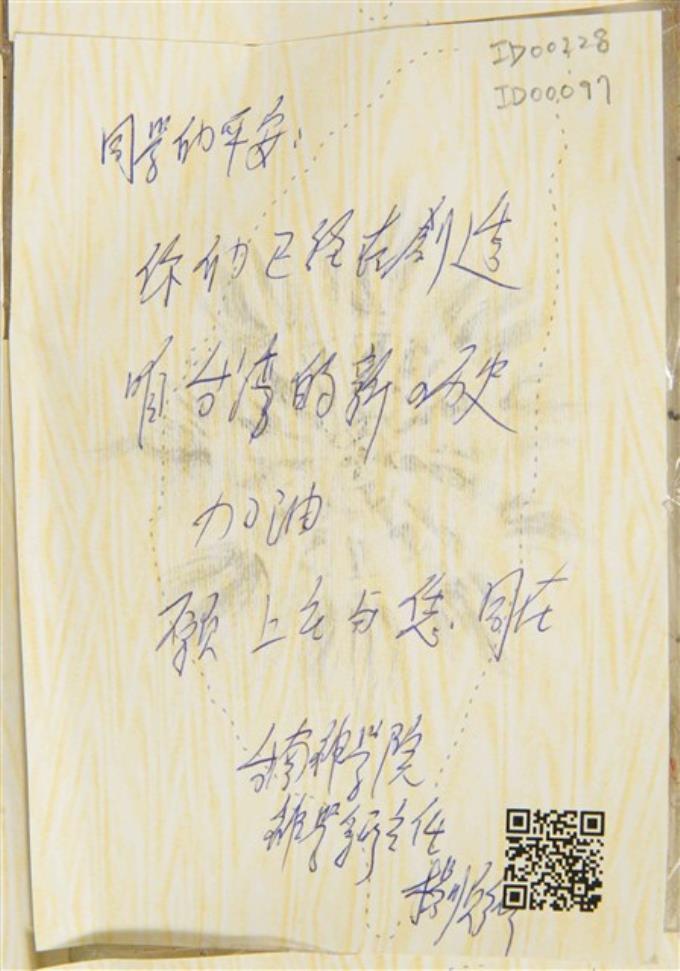 ID00228
ID00097
同學们平安：
你们已经在創造
咱台湾的新的历史
加油
願上主与您同在
台南神学院
神学系主任